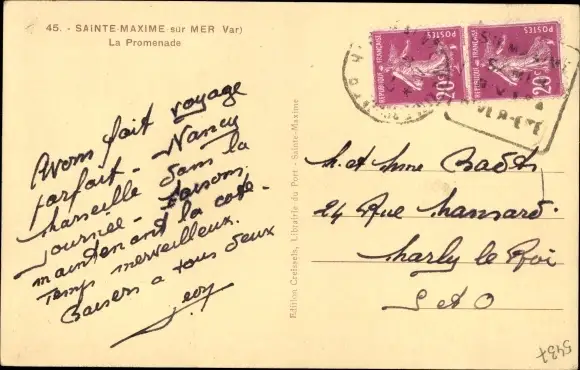 45. - SAINTE-MAXIME sur MER Var)
La Promenade
Avons fait voyage
parfait - Nancy
Marseille dans la
journée - Faisons
maintenant la cote -
Temps merveilleux.
Baisers a tous deux
Edition Creissels, Librairie du Port - Sainte-Maxime
REPUBLIQUE FRANÇAISE
POSTES
20c
REPUBLIQUE FRANÇAISE
POSTES
20c
M. et Mme
24 Rue Mansard.
Marly le Roi
S et O
5437